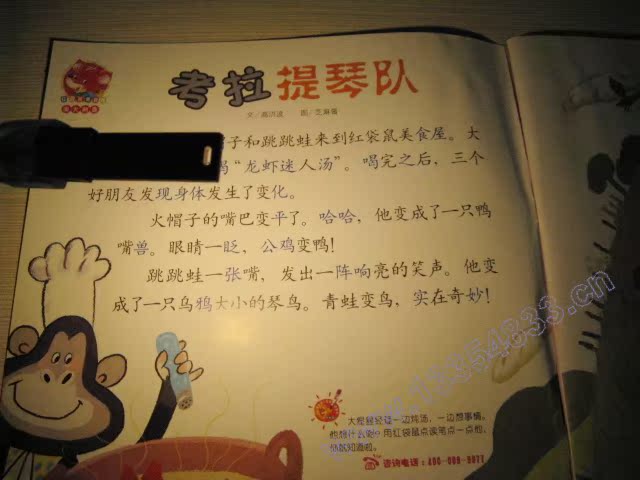 考拉提琴队
文/高洪波 图/芝麻酱
子和跳跳蛙来到红袋鼠美食屋。大
“龙虾迷人汤”。喝完之后，三个
好朋友发现身体发生了变化。
火帽子的嘴巴变平了。哈哈，他变成了一只鸭
嘴兽。眼睛一眨，公鸡变鸭！
跳跳蛙一张嘴，发出一阵响亮的笑声。他变
成了一只乌鸦大小的琴鸟。青蛙变鸟，实在奇妙！
大猩猩经理一边炖汤，一边想事情。
他想什么呢？用红袋鼠点读笔点一点他，
你就知道啦。
咨询电话：400-000-9077